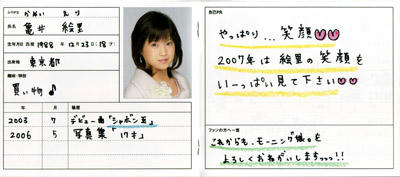 ふりがな かめい えり
氏名 亀井 絵里
生年月日 西暦 1988年 12月23日(18才)
出身地 東京都
趣味・特技
買い物♪
年 月 経歴
2003 7 デビュー曲「シャボン玉」
2006 5 写真集「17才」
自己PR
やっぱり...笑顔♥♥
2007年は絵里の笑顔を
いーっぱい見て下さい♥♥
ファンの方へ一言
これからも、モーニング娘。を
よろしくおねがいしまちっっっ!!